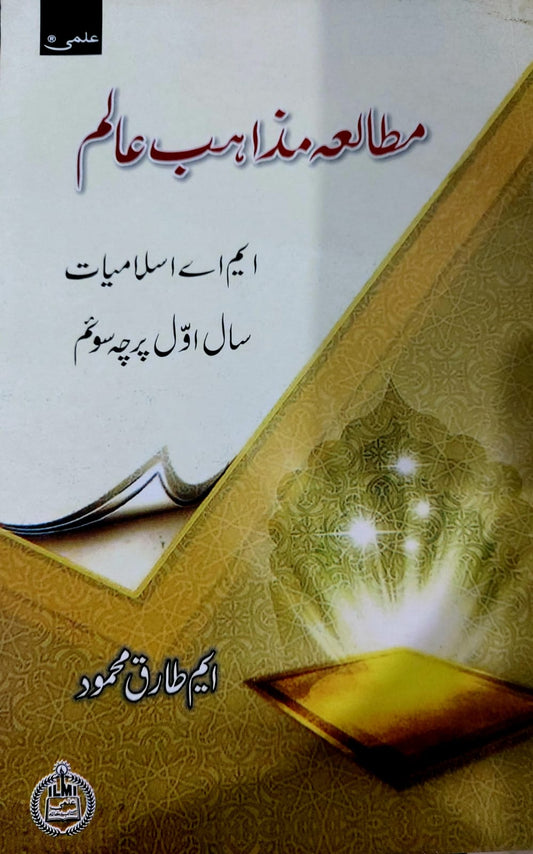 علمی®
مطالعہ مذاہب عالم
ایم اے اسلامیات
سال اوّل پرچہ سوئم
ایم طارق محمود
ILMI
علمی